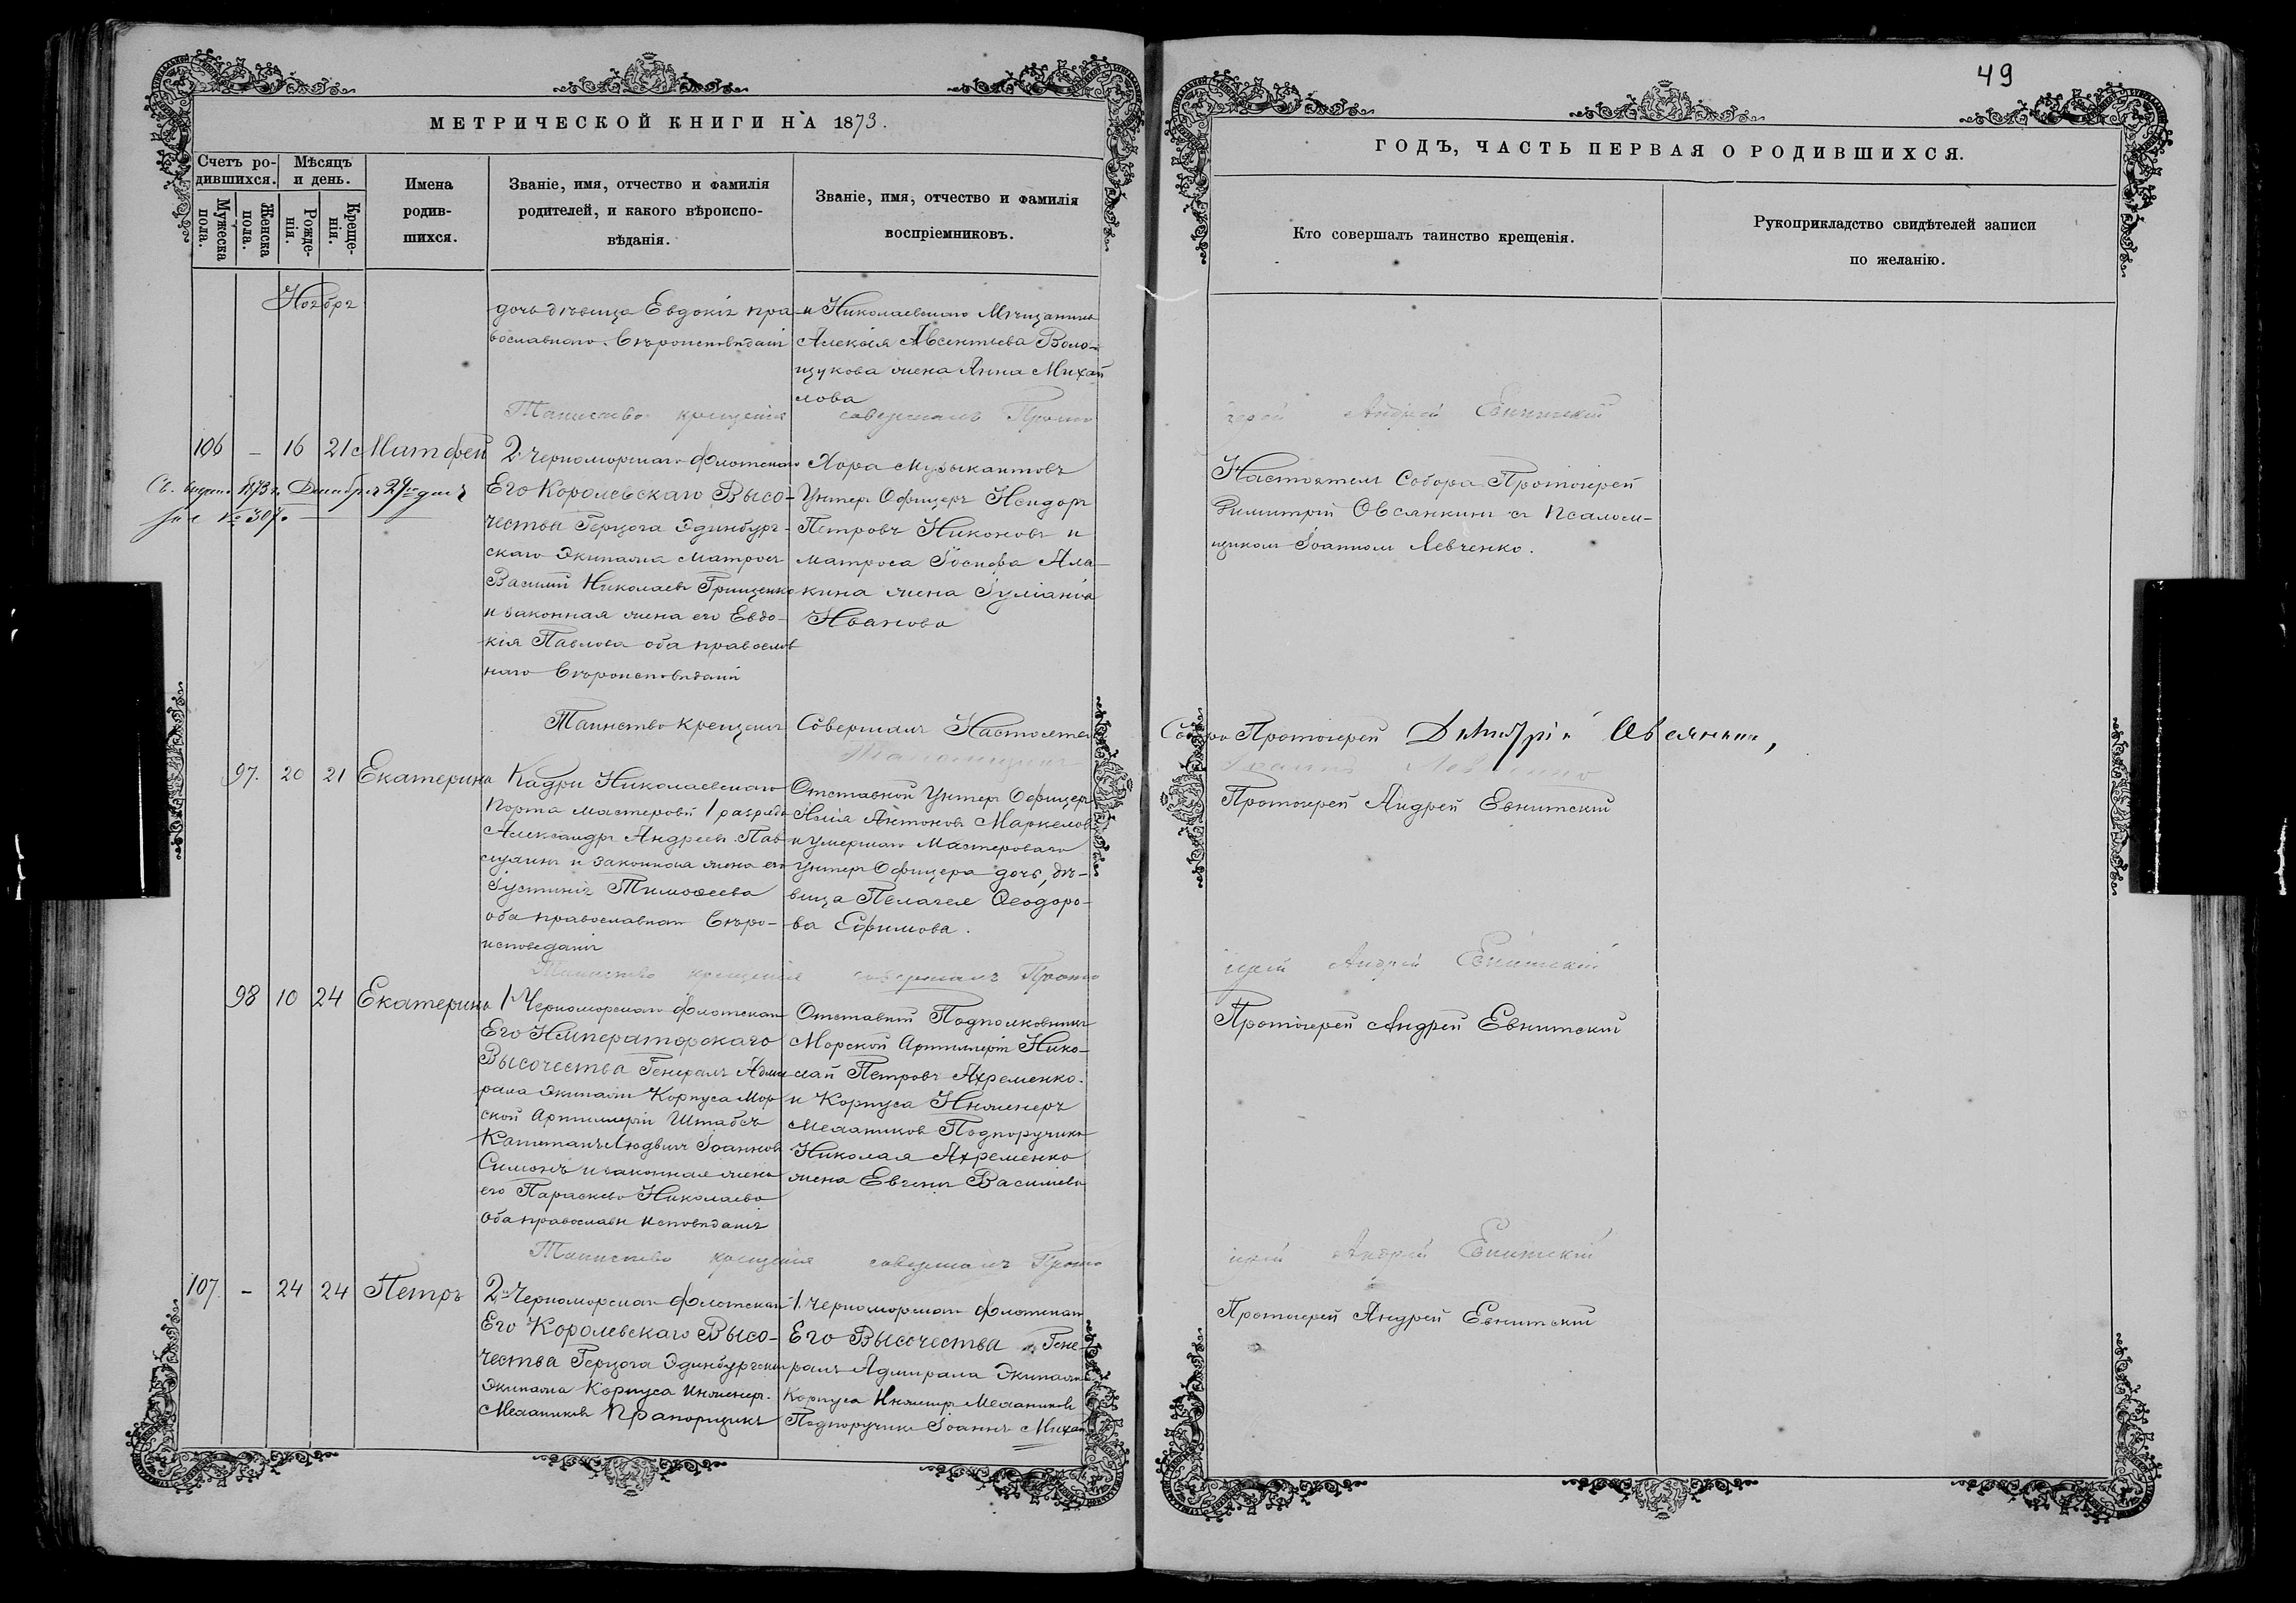 49
МЕТРИЧЕСКОЙ КНИГИ НА 1873.
Счетъ ро-
дившихся.
Мѣсяцъ
и день.
Мужеска
пола.
Женска
пола.
Рожде-
нія.
Креще-
нія.
Имена
родив-
шихся.
Званіе, имя, отчество и фамилія
родителей, и какого вѣроиспо-
вѣданія.
Званіе, имя, отчество и фамилія
воспріемниковъ.
ГОДЪ, ЧАСТЬ ПЕРВАЯ О РОДИВШИХСЯ.
Кто совершалъ таинство крещенія.
Рукоприкладство свидѣтелей записи
по желанію.
Ноябрь
дочь дѣвица Евдокія пра-
вославнаго вѣроисповѣданія
и Николаевскаго Мѣщанина
Алексія Авсентьева Воло-
щукова жена Анна Михай
лова
Таинство крещенія совершалъ Прото
іерей Андрей Евнитскій
106 – 16 21 Матфей
2. Черноморскаго флотскаго
Его Королевскаго Высо-
чества Герцога Эдинбург-
скаго Экипажа матросъ
Василій Николаевъ Грищенко
и законная жена его Евдо-
кія Павлова оба православ
наго вѣроисповѣданія
Хора Музыкантовъ
Унтеръ Офицеръ Исидоръ
Петровъ Никоновъ и
матроса Іосифа Ала-
кина жена Іуліанія
Иванова
Св. 1873 г. Декабря 29 дня
за № 307.
Настоятель Собора Протоіерей
Димитрій Овсянкинъ съ Псалом-
щикомъ Іоанномъ Левченко.
Таинство крещенія Совершалъ Настоятель
Собора Протоіерей Димитрій Овсянкинъ,
Іоаннъ Левченко
97. 20 21 Екатерина
Кадри Николаевскаго
Порта мастеровой 1 разряда
Александръ Андреевъ Пав
и законная жена его
Іустинія Тимоѳеева
оба православнаго вѣро-
исповеданія
Отставной Унтеръ Офицеръ
Илія Антоновъ Маркеловъ
и умершаго Мастероваго
Унтеръ Офицера дочь, дѣ-
вица Пелагея Ѳеодоро-
ва Ефимова.
Протоіерей Андрей Евнитскій
Таинство крещенія совершалъ Прото
іерей Андрей Евнитскій
98 10 24 Екатерина
1. Черноморскаго флотскаго
Его Императорскаго
Высочества Генералъ Адми
рала Экипажа Корпуса Мор
ской Артиллеріи Штабсъ
Капитанъ Людвигъ Іоанновъ
Симонъ и законная жена
его Параскева Николаева
Оба православн исповѣданія
Отставный Подполковникъ
Морской Артиллеріи Нико-
лай Петровъ Ахременко.
и Корпуса Инженеръ
Механиковъ Подпоручика
Николая Ахременко
жена Евгенія Василіева
Протоіерей Андрей Евнитскій
Таинство крещенія совершалъ Прото
іерей Андрей Евнитскій
107. – 24 24 Петръ
2. Черноморскаго флотскаго
Его Королевскаго Высо-
чества Герцога Эдинбургскаго
Экипажа Корпуса Инженер.
Механиковъ Прапорщикъ
1. Черноморскаго флотскаго
Его Высочества Гене-
ралъ Адмирала Экипажа
Корпуса Инженеръ Механиковъ
Подпоручикъ Іоаннъ Михай
Протоіерей Андрей Евнитскій